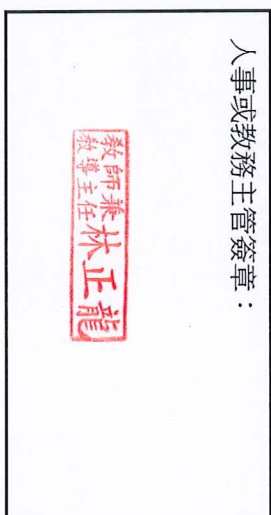 人事或教務主管簽章：
教師兼
教導主任
林正龍